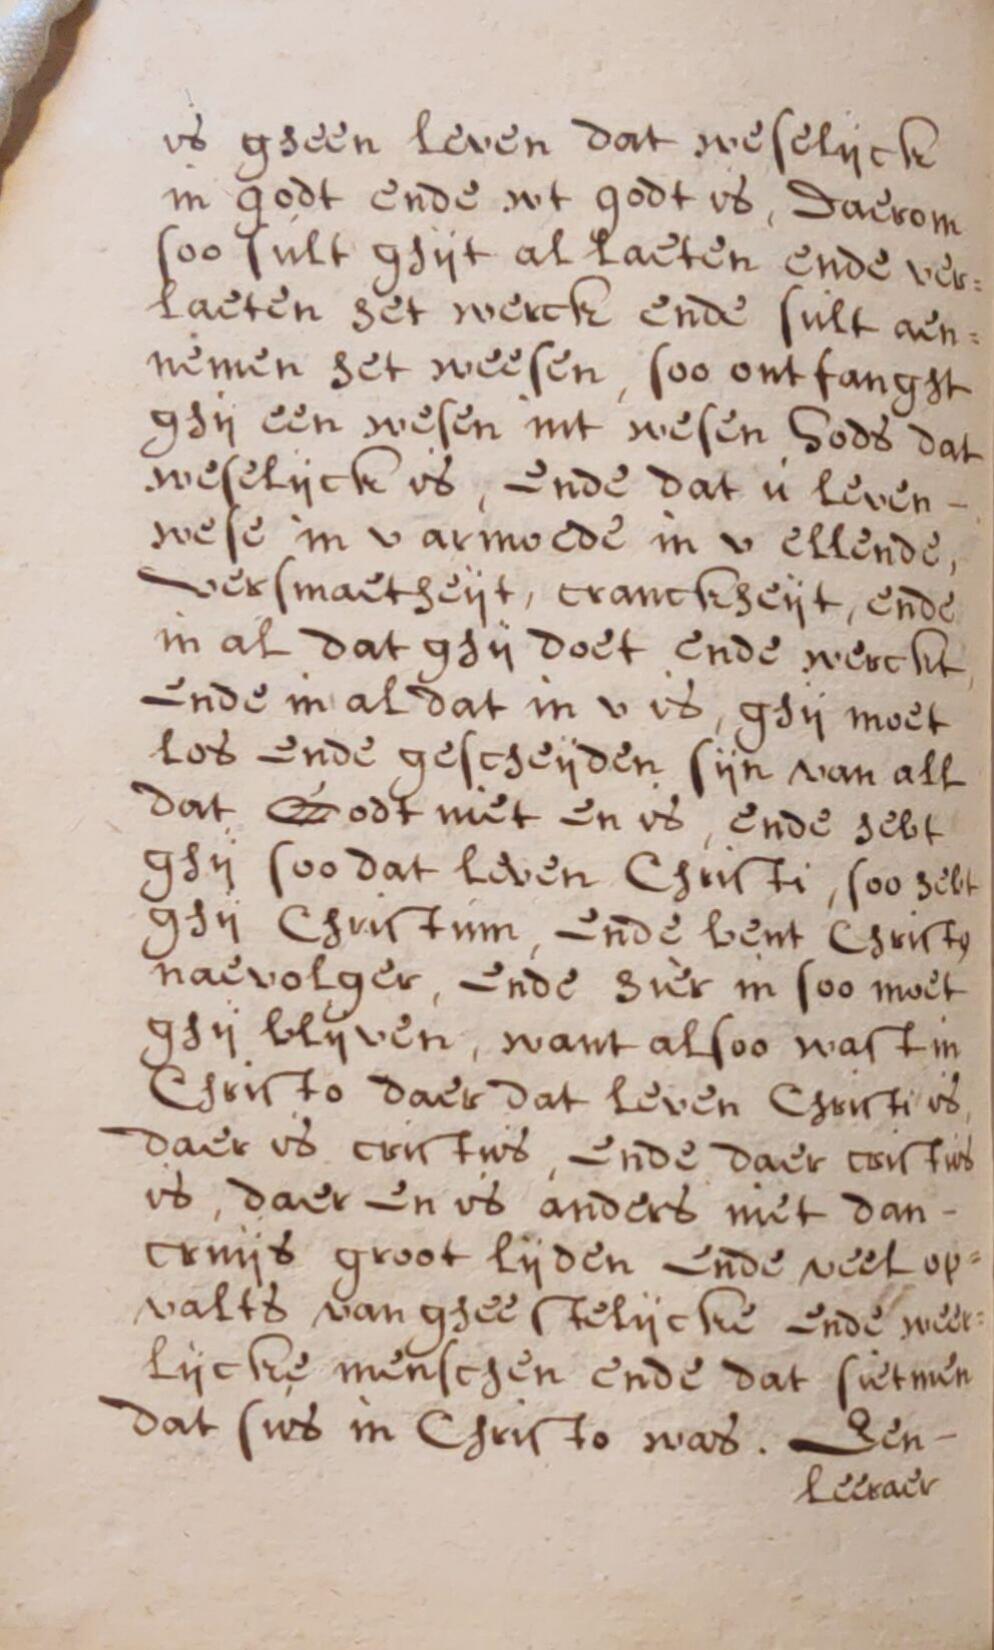 is gheen leven dat weselijck
in godt ende wt godt is, Daerom
soo sult ghijt al laeten ende ver=
laeten het werck ende sult aen=
nemen het weesen, soo ontfanght
ghij een wesen int wesen Gods dat
weselijck is, Ende dat u leven-
wese in v armoede in v ellende,
versmaetheijt, cranckheijt, ende
in al dat ghij doet ende werckt,
Ende in al dat in v is, ghij moet
los Ende gescheijden sijn van all
dat Godt niet En is, ende hebt
ghij soo dat leven Christi, soo hebt
ghij Christum, Ende bent Christy
naevolger, Ende hier in soo moet
ghij blijven, want alsoo wast in
Christo daer dat leven Christi is,
daer is cristus, Ende daer cristus
is, daer En is anders niet dan-
cruijs groot lijden Ende veel op=
valts van gheestelijcke Ende weer=
lijcke menschen ende dat sietmen
dat sus in Christo was. Een-
leeraer